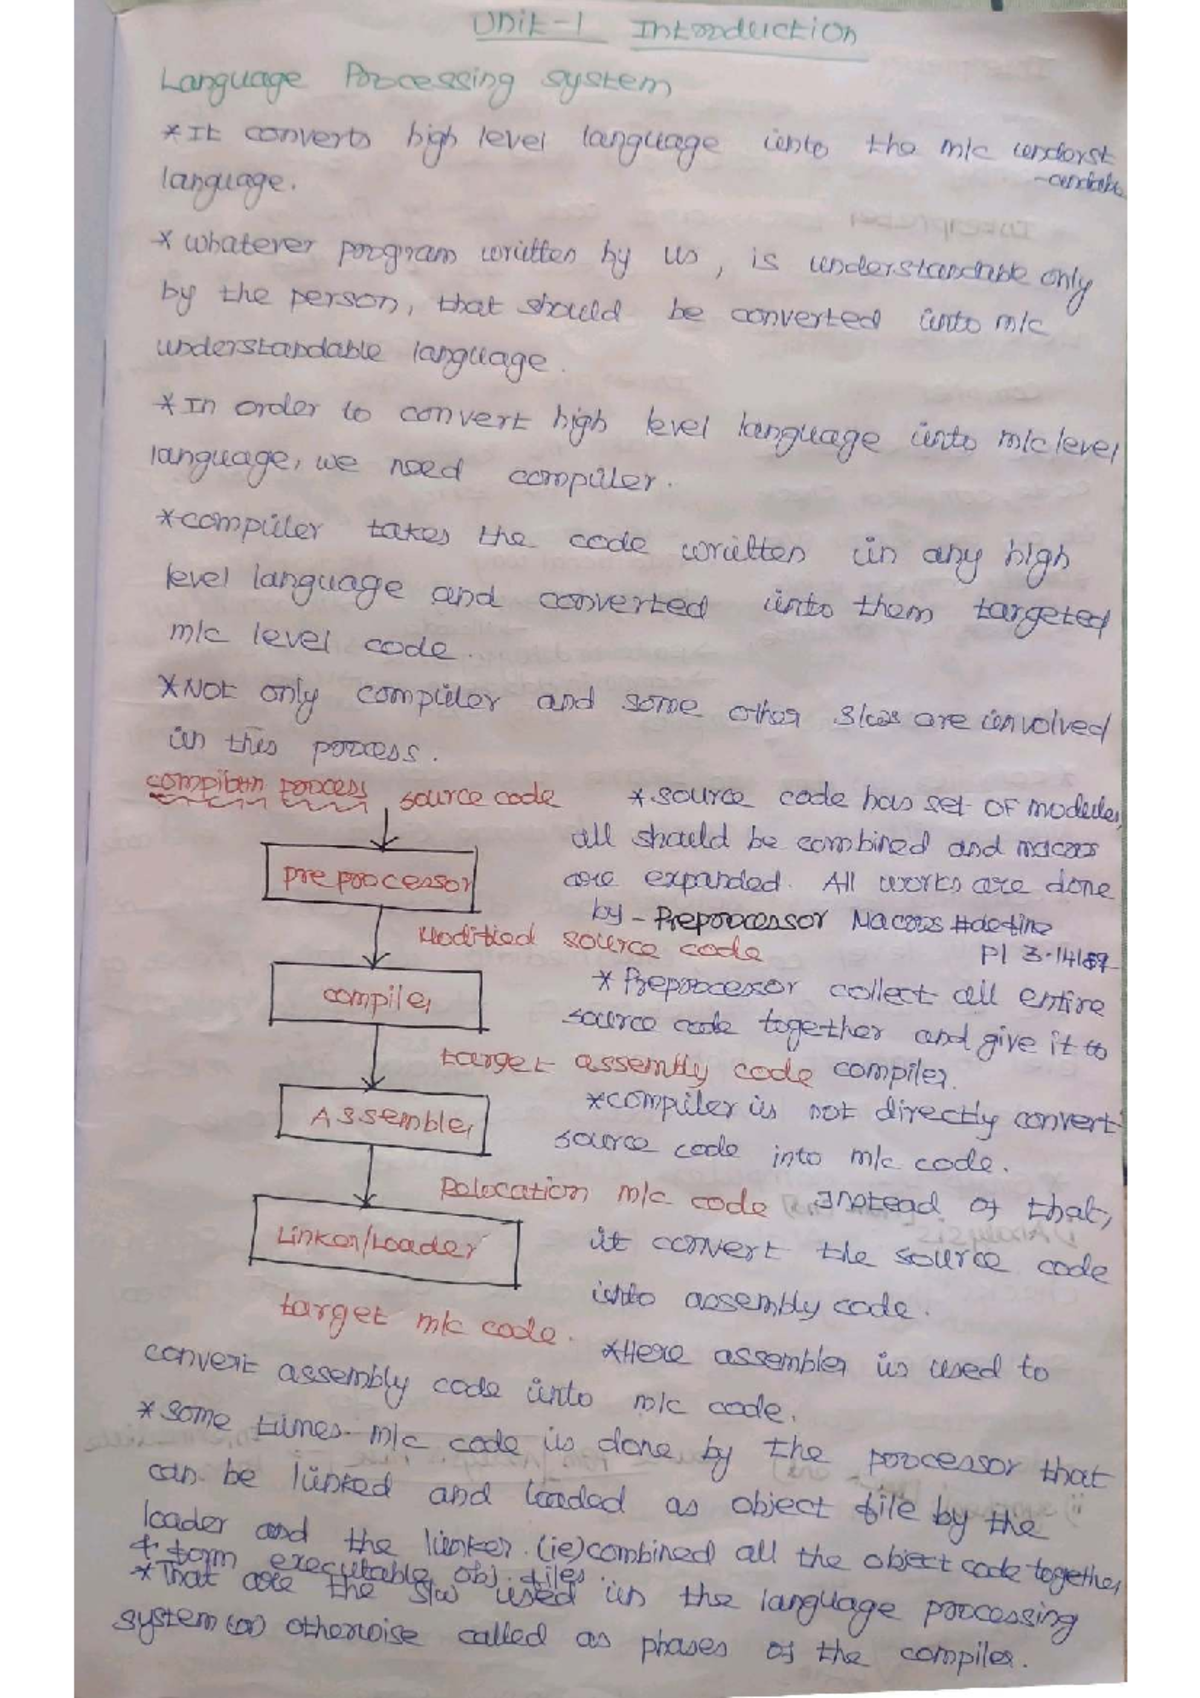 Unit-1 Introduction
Language Processing system
*It converts high level language into the m/c underst
-andable
language.
*whatever program written by us, is understandable only
by the person, that should be converted into m/c
understandable language.
*In order to convert high level language into m/c level
language, we need compiler.
*compiler takes the code written in any high
level language and converted into them targeted
m/c level code.
*Not only compiler and some other s/ws are involved
in this process.
compilation process source code
*source code has set of modules,
all should be combined and macros
preprocessor
are expanded. All works are done
by - Preprocessor Macros #define
Modified source code
PI 3.14
*Preprocessor collect all entire
compiler
source code together and give it to
target assembly code compiler.
*compiler is not directly convert
Assembler
source code into m/c code.
Relocation m/c code Instead of that,
Linker/Loader
it convert the source code
into assembly code.
target m/c code.
*Here assembler is used to
convert assembly code into m/c code.
*some times m/c code is done by the processor that
can be linked and loaded as object file by the
loader and the linker. (ie) combined all the object code together
& form executable obj. files.
*That are the s/w used in the language processing
system (or) otherwise called as phases of the compiler.